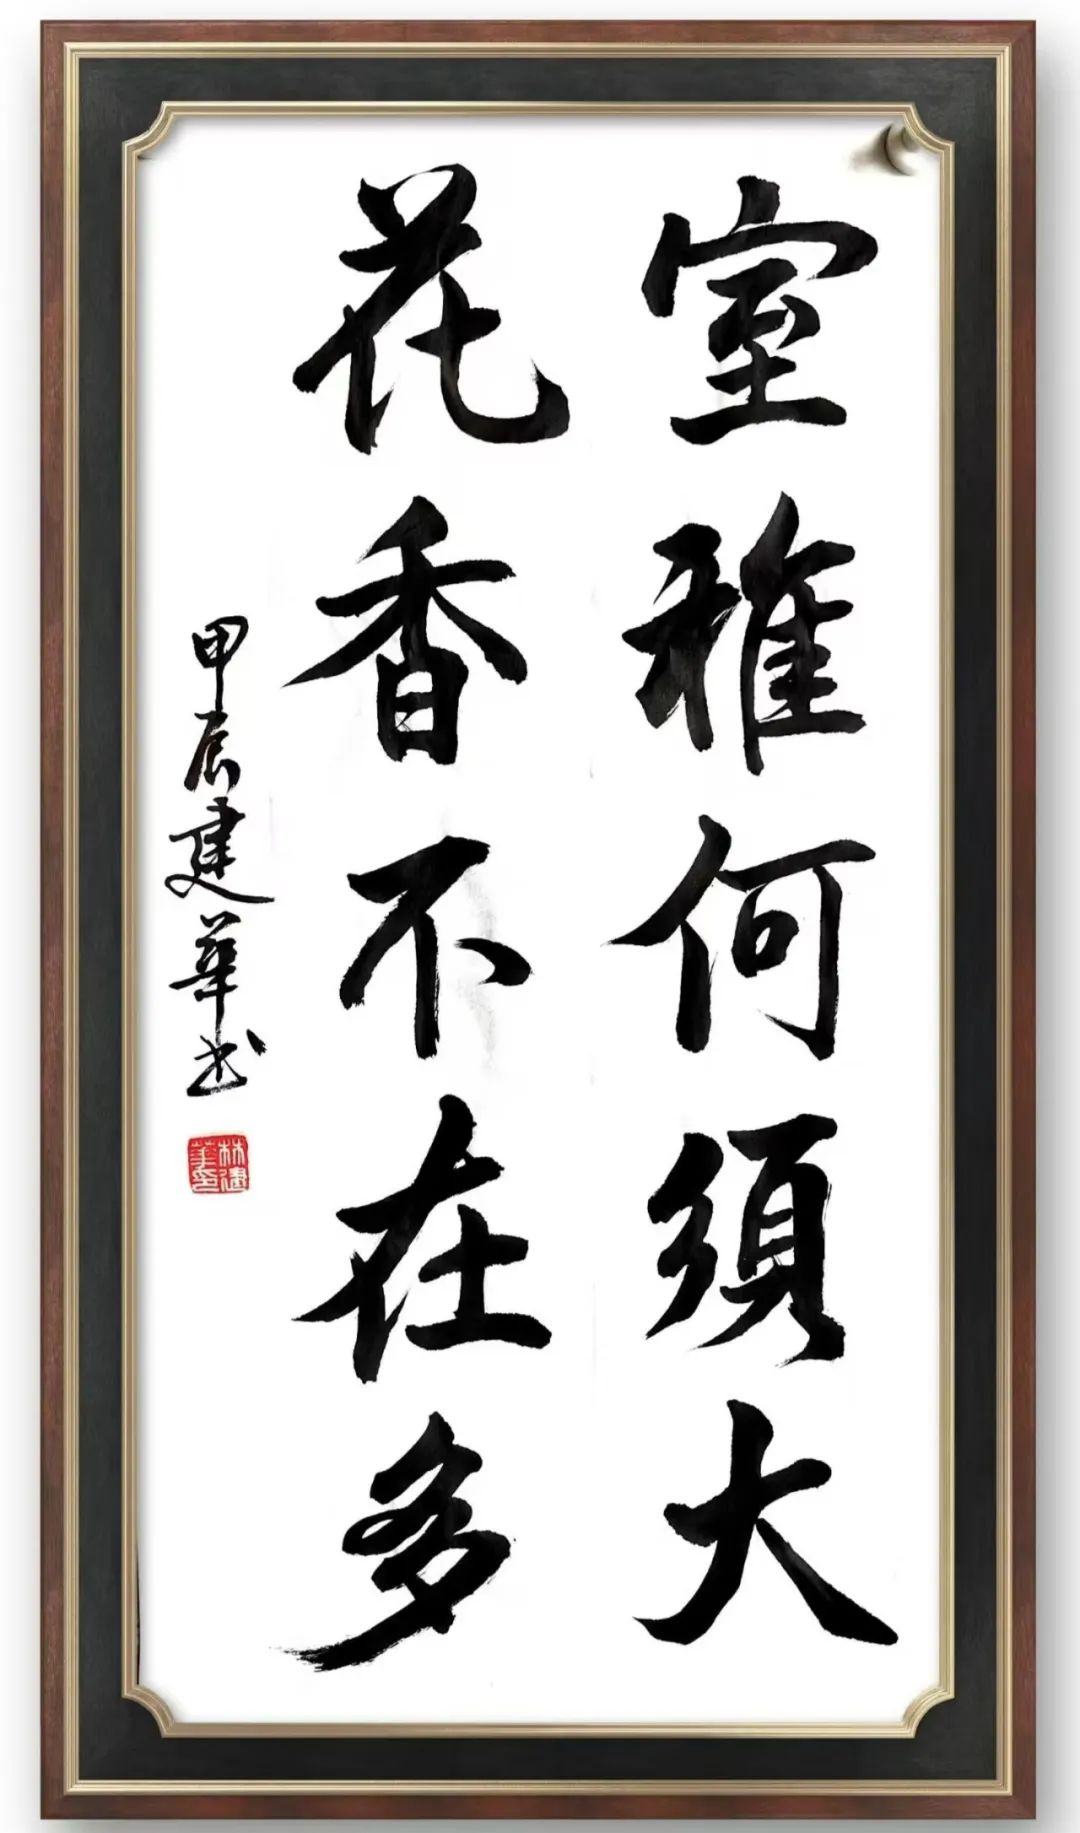 室雅何須大
花香不在多
甲辰建華书
林建華印